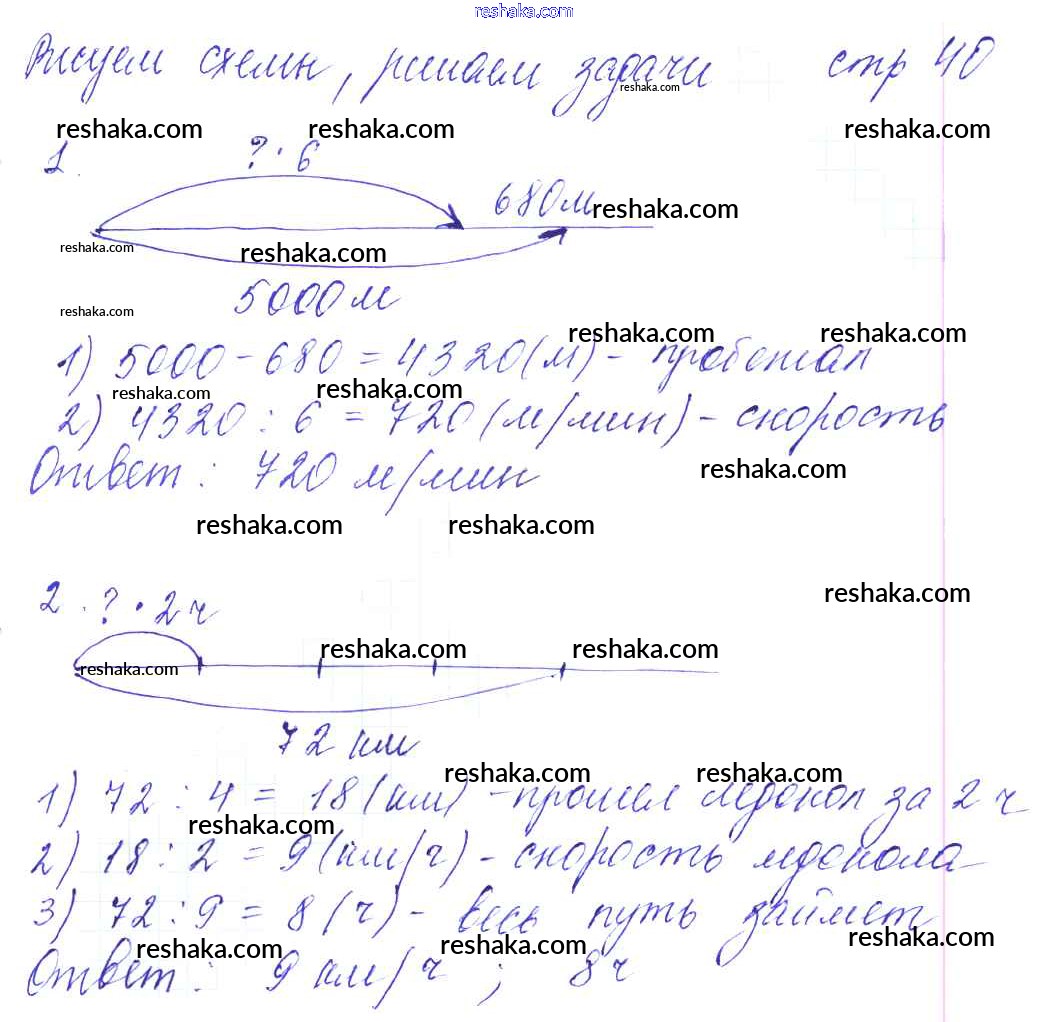 reshaka.com
Рисуем схемы, решаем задачи стр 40
reshaka.com
reshaka.com reshaka.com reshaka.com
1. ? · 6
680м reshaka.com
reshaka.com reshaka.com
5000м
reshaka.com
reshaka.com reshaka.com
1) 5000 - 680 = 4320 (м) - пробежал
reshaka.com reshaka.com
2) 4320 : 6 = 720 (м/мин) - скорость
Ответ: 720 м/мин
reshaka.com
reshaka.com reshaka.com
2. ? · 2 ч
reshaka.com
reshaka.com reshaka.com
reshaka.com
72 км
reshaka.com reshaka.com
1) 72 : 4 = 18 (км) - прошел ледокол за 2 ч
reshaka.com
2) 18 : 2 = 9 (км/ч) - скорость ледокола
3) 72 : 9 = 8 (ч) - весь путь займет
reshaka.com reshaka.com reshaka.com
Ответ: 9 км/ч ; 8 ч